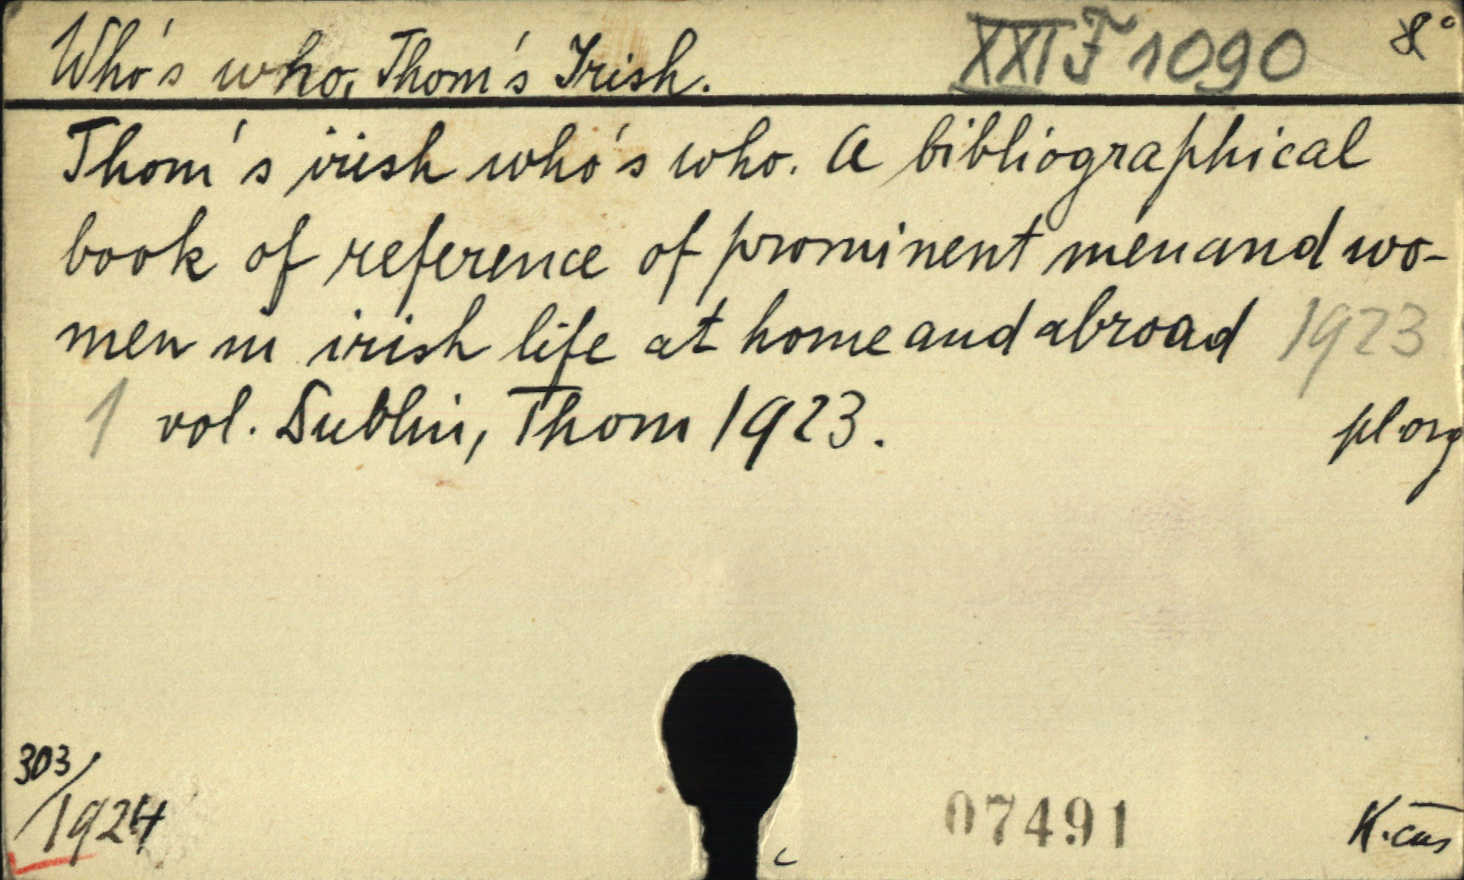 Who's who, Thom's Irish. XXI F 1090 8°
Thom's irish who's who. A bibliographical
book of reference of prominent men and wo-
men in irish life at home and abroad 1923
1 vol. Dublin, Thom 1923. pl. org
303/1924
07491